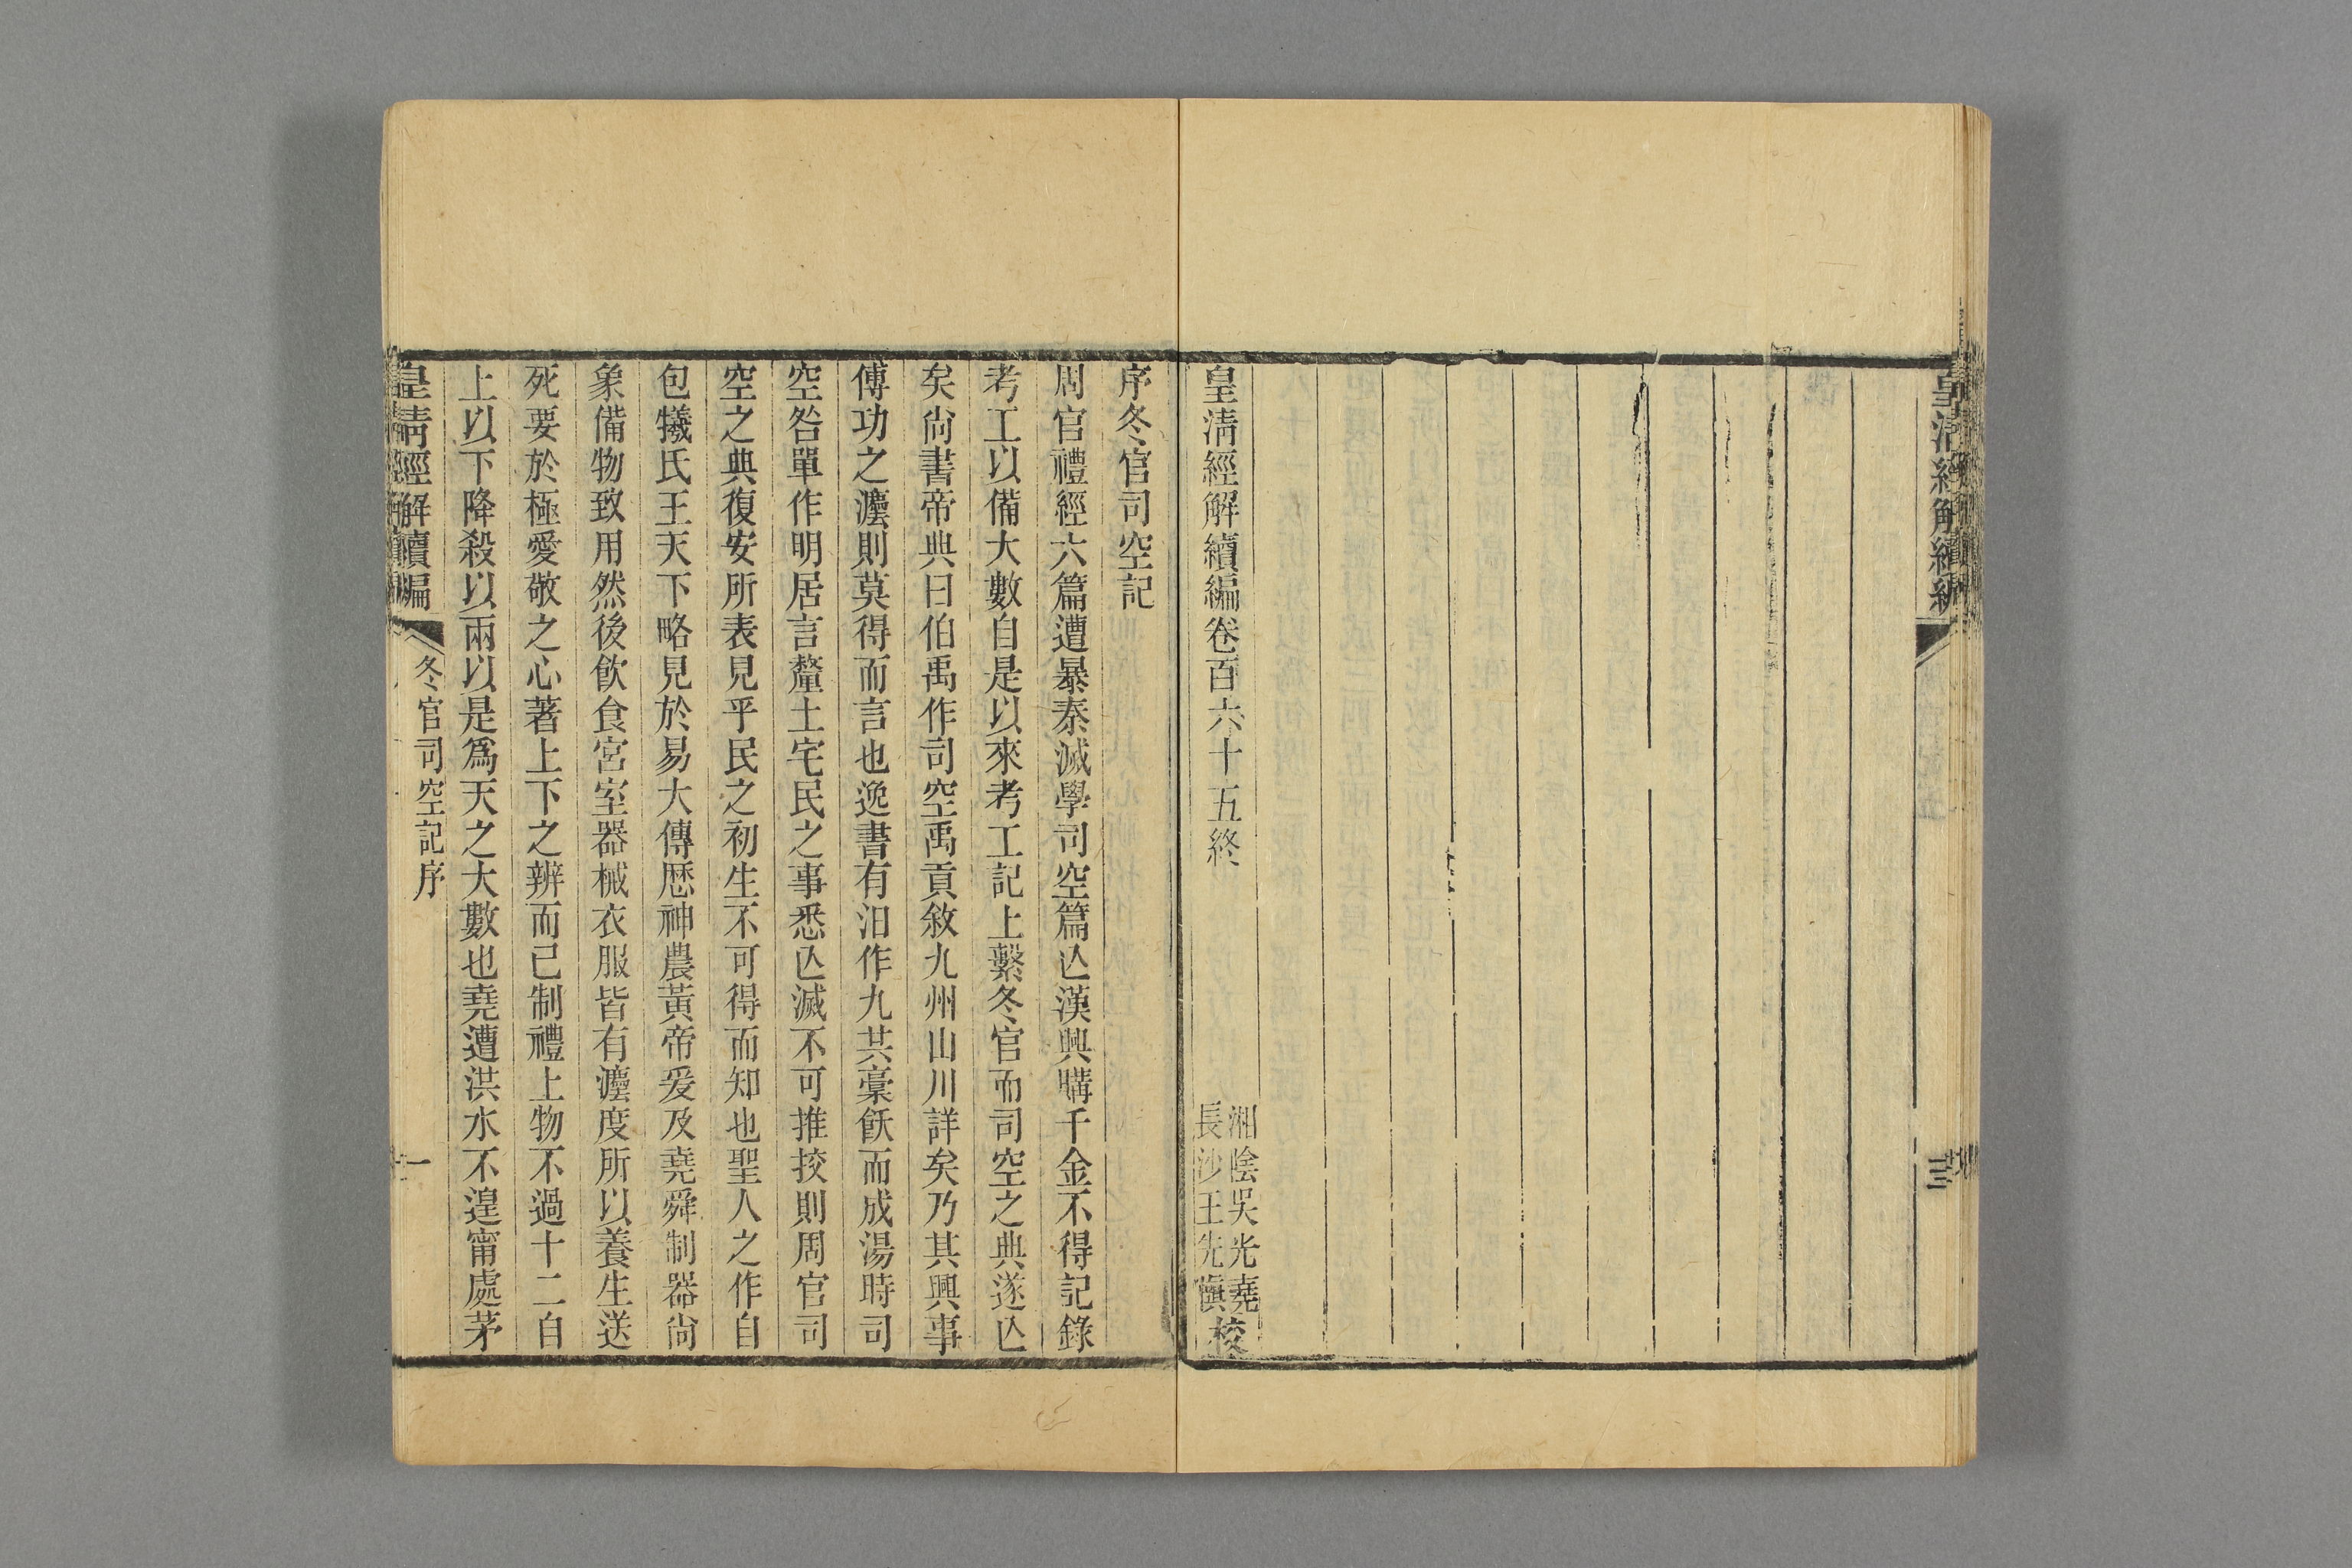 皇清經解續編
三
皇清經解續編卷百六十五終
湘陰吳光堯
長沙王先慎校
序冬官司空記
周官禮經六篇遭暴秦滅學司空篇亾漢興購千金不得記錄
考工以備大數自是以來考工記上繫冬官而司空之典遂亾
矣尙書帝典曰伯禹作司空禹貢敘九州山川詳矣乃其興事
傅功之灋則莫得而言也逸書有汨作九共稾飫而成湯時司
空咎單作明居言釐土宅民之事悉亾滅不可推挍則周官司
空之典復安所表見乎民之初生不可得而知也聖人之作自
包犧氏王天下略見於易大傳歷神農黃帝爰及堯舜制器尙
象備物致用然後飲食宮室器械衣服皆有灋度所以養生送
死要於極愛敬之心著上下之辨而已制禮上物不過十二自
上以下降殺以兩以是爲天之大數也堯遭洪水不遑甯處茅
皇清經解續編
冬官司空記序
一